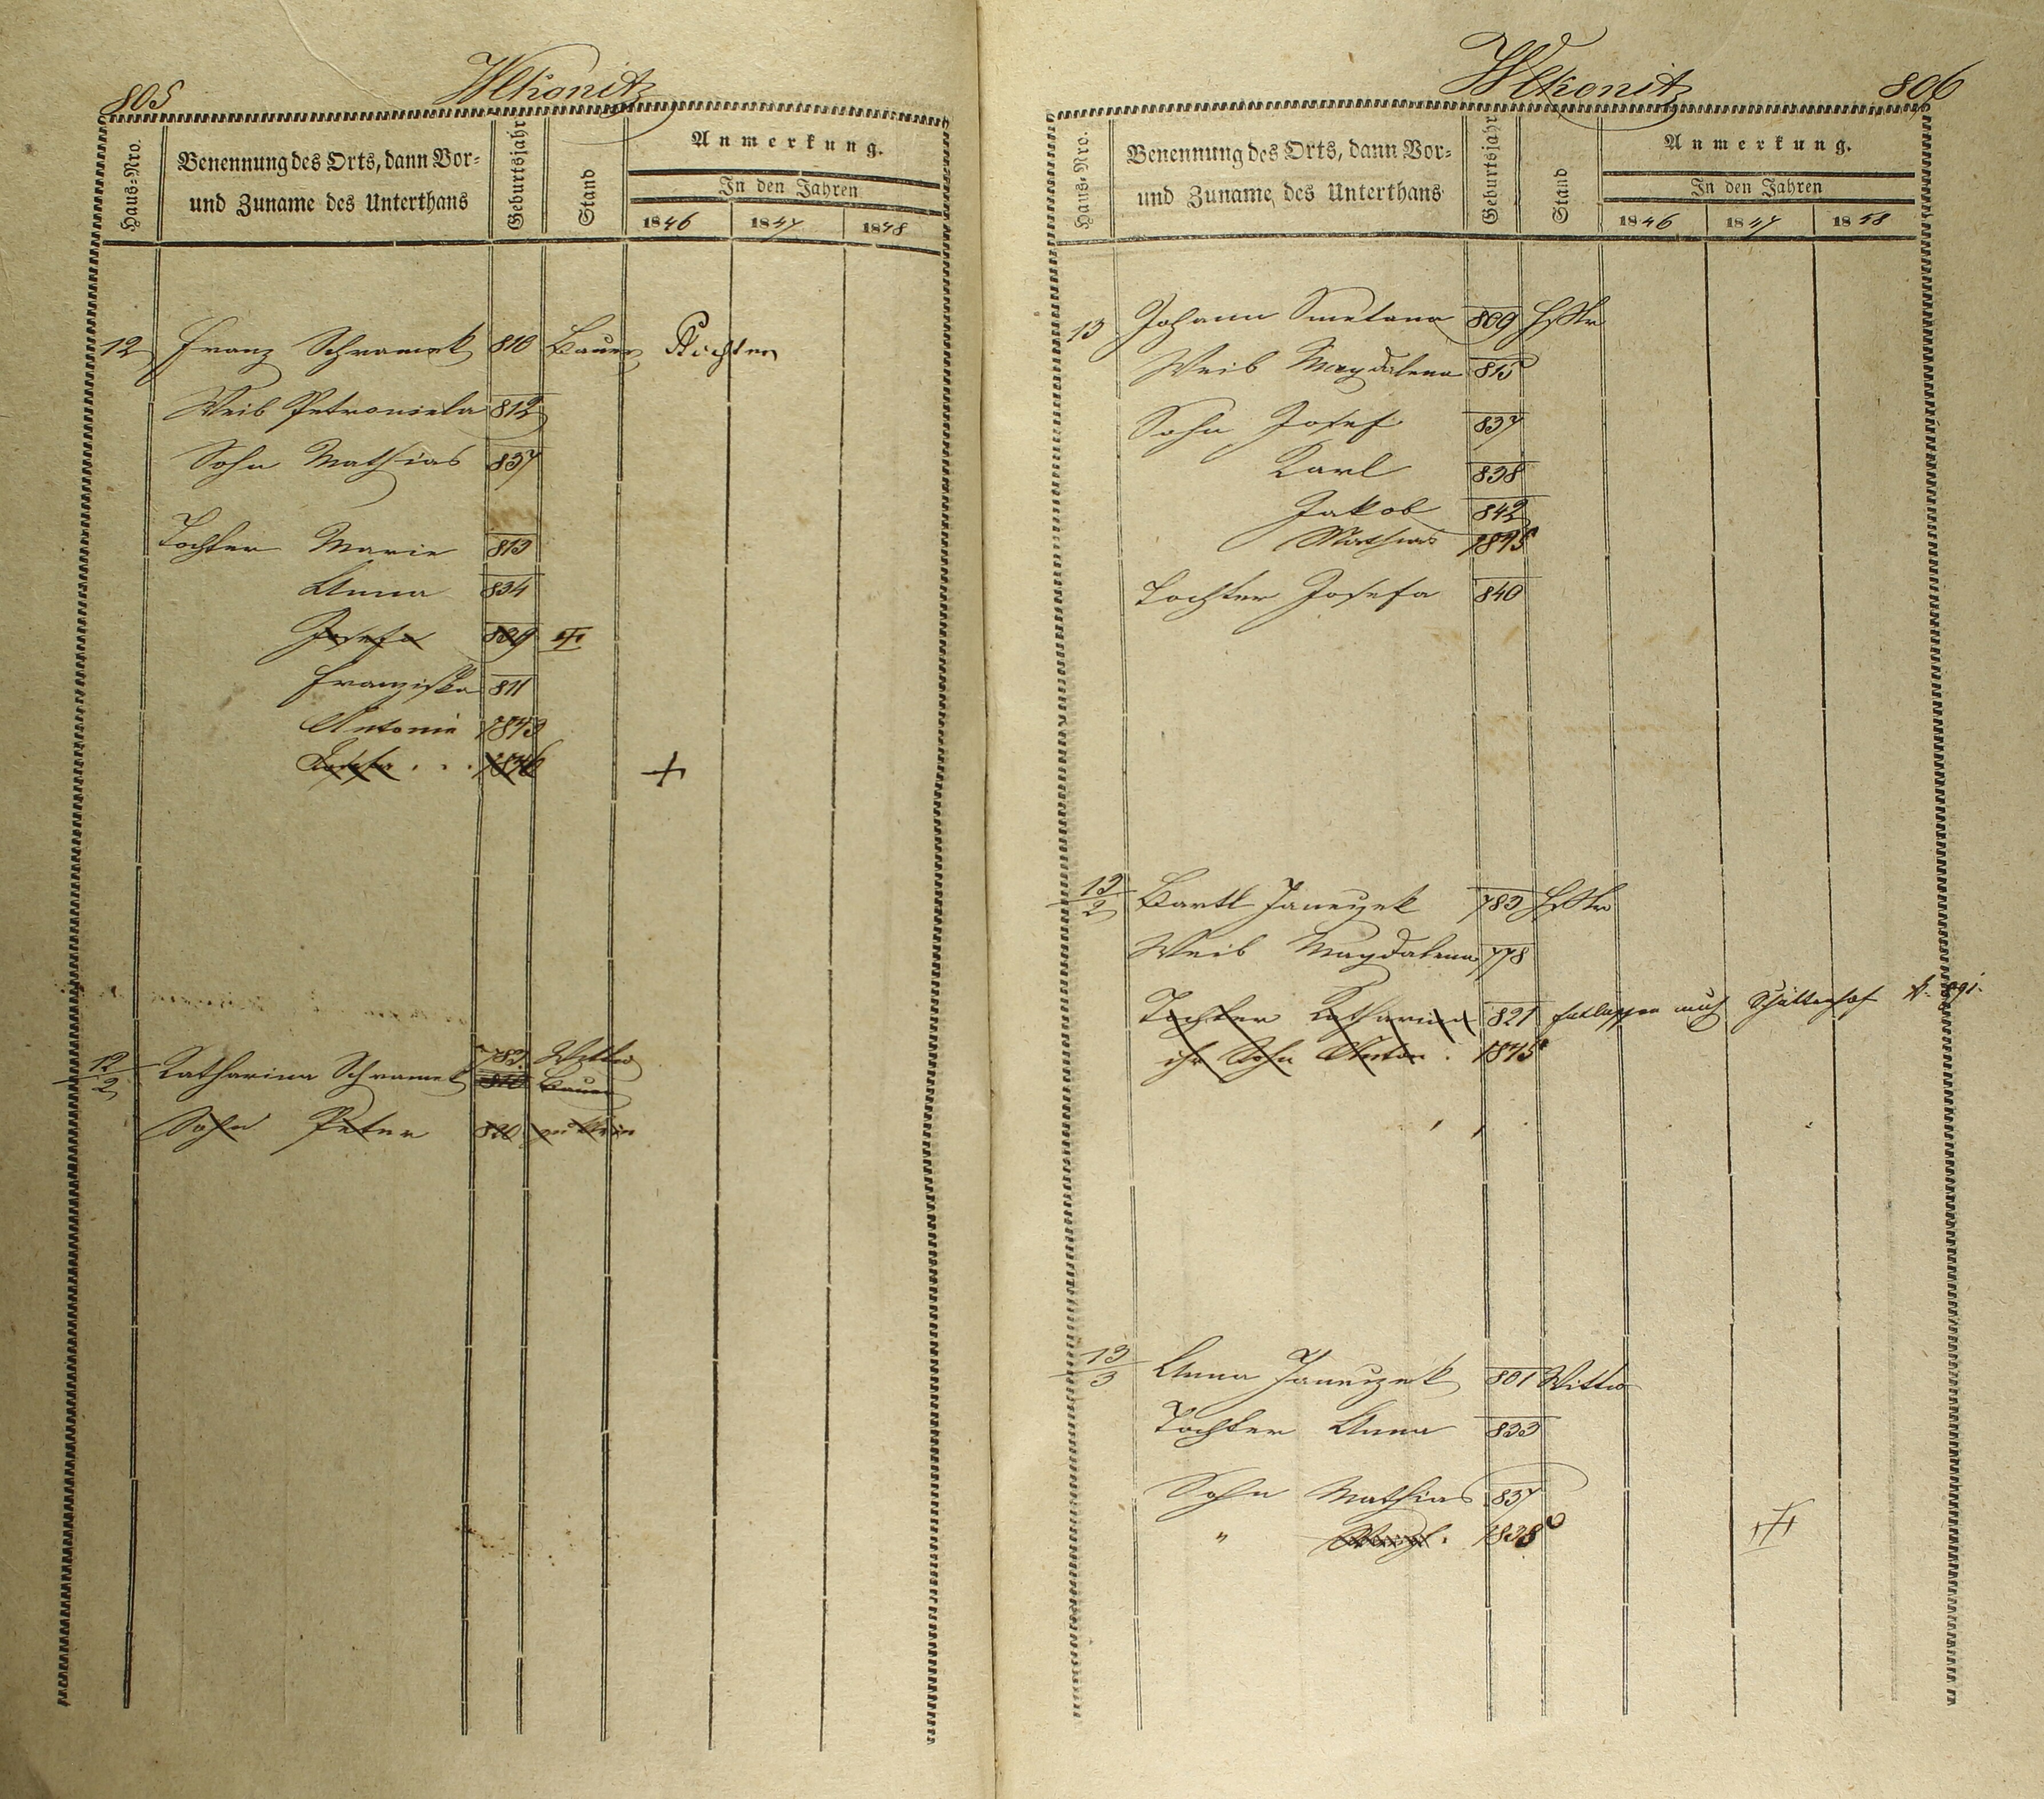 805
Wlkonitz
Haus=Nro.
Benennung des Orts, dann Vor=
und Zuname des Unterthans
Geburtsjahr
Stand
Anmerkung.
In den Jahren
1846 1847 1848
12 Franz Schramek 810 Bauer Richter
Weib Petroniela 812
Sohn Mathias 837
Tochter Marie 813
Anna 834
Josefa 839
Franziska 811
Antonia 1843
Josefa . . . 1846 +
12/2 Katharina Schramek 783 Wittwe
810 Bauer
Sohn Peter 820
Wlkonitz
806
Haus=Nro.
Benennung des Orts, dann Vor=
und Zuname des Unterthans
Geburtsjahr
Stand
Anmerkung.
In den Jahren
1846 1847 1848
13 Johann Smetana 809
Weib Magdalena 815
Sohn Josef 837
Karl 838
Jakob 842
Mathias 1845
Tochter Josefa 840
13/2 Bartl Janeczek 783
Weib Magdalena 778
Tochter Katharina 821 entlassen nach Schüttenhof
ihr Sohn Anton . 1845
13/3 Anna Janeczek 801 Wittwe
Tochter Anna 833
Sohn Mathias 837
" 1838